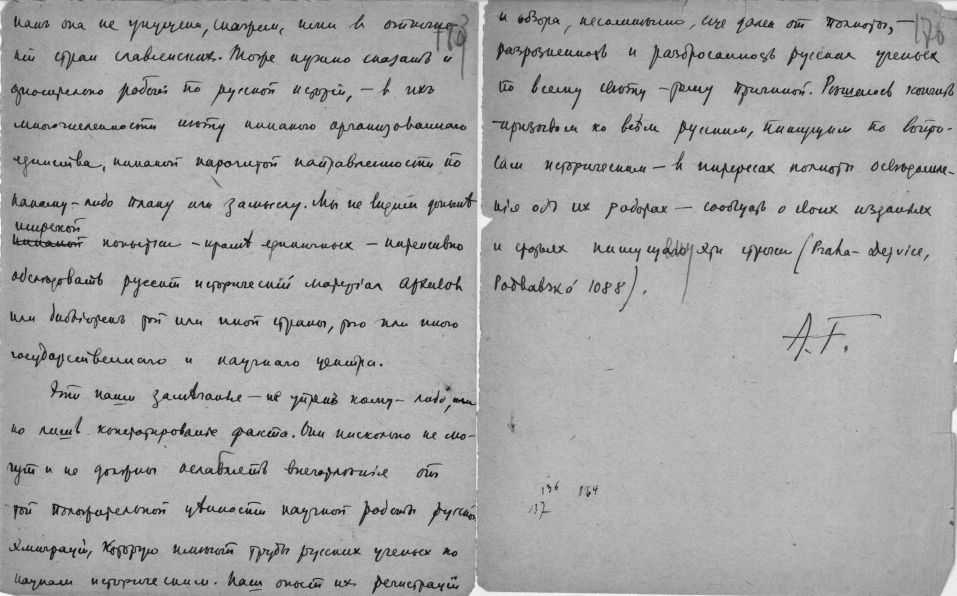 нами она не упущена, смотрим, или в отношении стран славянских. То же нужно сказать и
относительно работ по русской исторіи, — в их
многочисленности нѣту никакого организованнаго
единства, никакой нарочитой направленности по
какому-либо плану или замыслу. Мы не видим даже
широкой
попытки — кромѣ единичных — интенсивно
обслѣдовать русскій историческій матеріал архивов
или библіотек той или иной страны, того или иного
государственнаго и научнаго центра.
Это наше замѣчаніе — не упрек кому-либо,
но лишь констатированіе факта. Они нисколько не мо-
гут и не должны ослаблять впечатлѣнія от
той положительной цѣнности научной работы русской
эмиграціи, которую имѣют труды русских ученых по
наукам историческим. Наш опыт их регистраціи
178
и обзора, несомнѣнно, еще далек от полноты, —
разрозненность и разбросанность русских ученых
по всему свѣту — тому причиной. Хотелось кончить
призывом ко всѣм русским, пишущим по вопро-
сам историческим — в интересах полноты освѣдомле-
нія об их работах — сообщать о своих изданіях
и трудах пишущему эти строки (Praha - Dejvice,
Podbabská 1088).
А. Г.
136 864
137